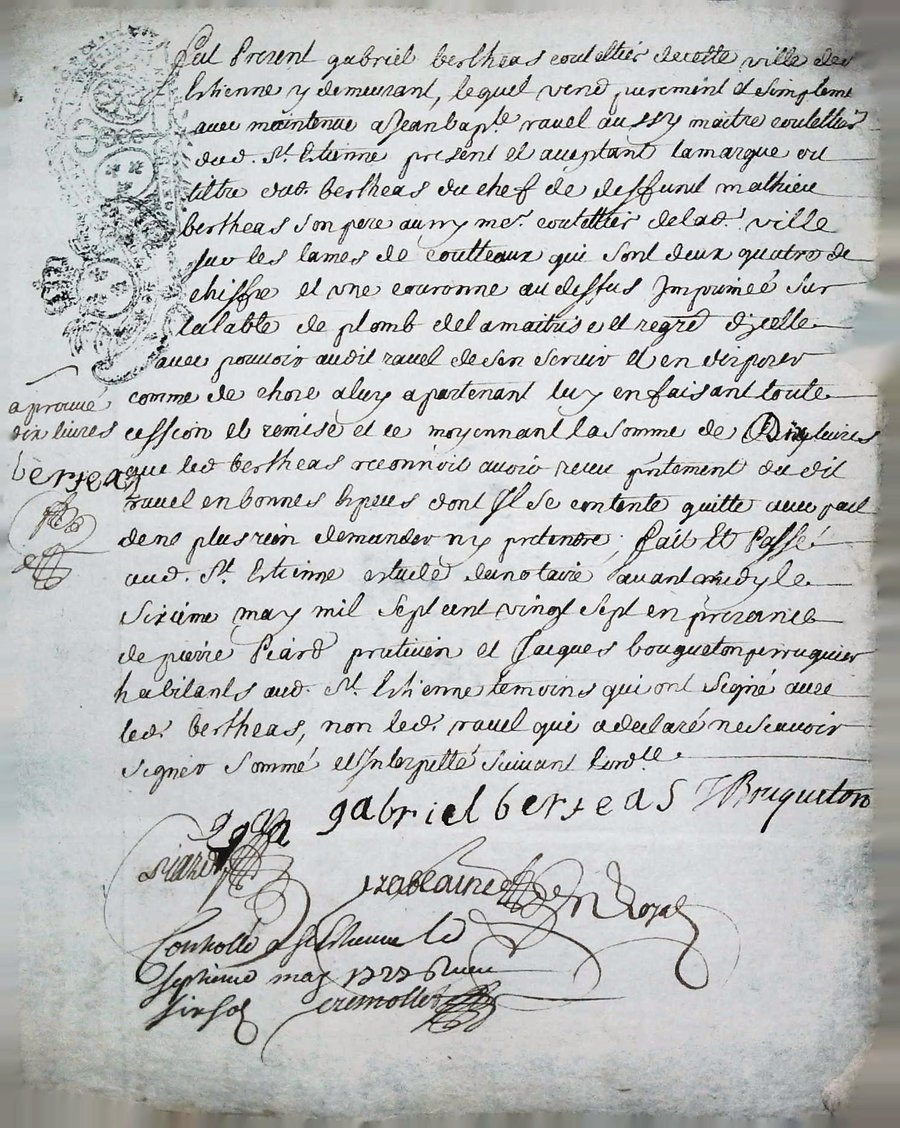 fut Present gabriel bertheas coutellier de cette ville de St
Estienne y demeurant, lequel vend purement et simplemt
avec maintenue a Jean bapte ravel aussy maitre coutellier
dud. St. Estienne present et aceptant la marque ou
tiltre dud bertheas du chef de deffunt mathieu
bertheas son pere aussy me. coutellier de lad. ville
sur les lames de coutteaux qui sont deux quatre de
chiffre et une couronne au dessus Imprimeé sur
la table de plomb de la maitrise et regrê d'jcelle
avec pouvoir audit ravel de sen servir et en disposer
comme de chose a luy apartenant luy en faisant toute
cession et remise et ce moyennant la somme de Dix livres
que led bertheas reconnoit avoir receu pñtement du dit
ravel en bonnes Especes dont Il se contente quitte avec pact
de ne plus rien demander ny pretendre, fait Et Passé
aud. St. Estienne estude du notaire avant midy le
sixieme may mil sept cent vingt sept en présence
de pierre Piard praticien et Jacques bougueton perruquier
habitants aud. St. Estienne temoins qui ont signé avec
led. bertheas, non led. ravel qui a declaré ne scavoir
signer sommé et Interpellé suivant Lordce.
aprouvé
dix livres
berteas
gabriel berteas J Bougueton
piard
not Royal
Controllé a St Estienne le
septieme may 1727 Receu
six sols